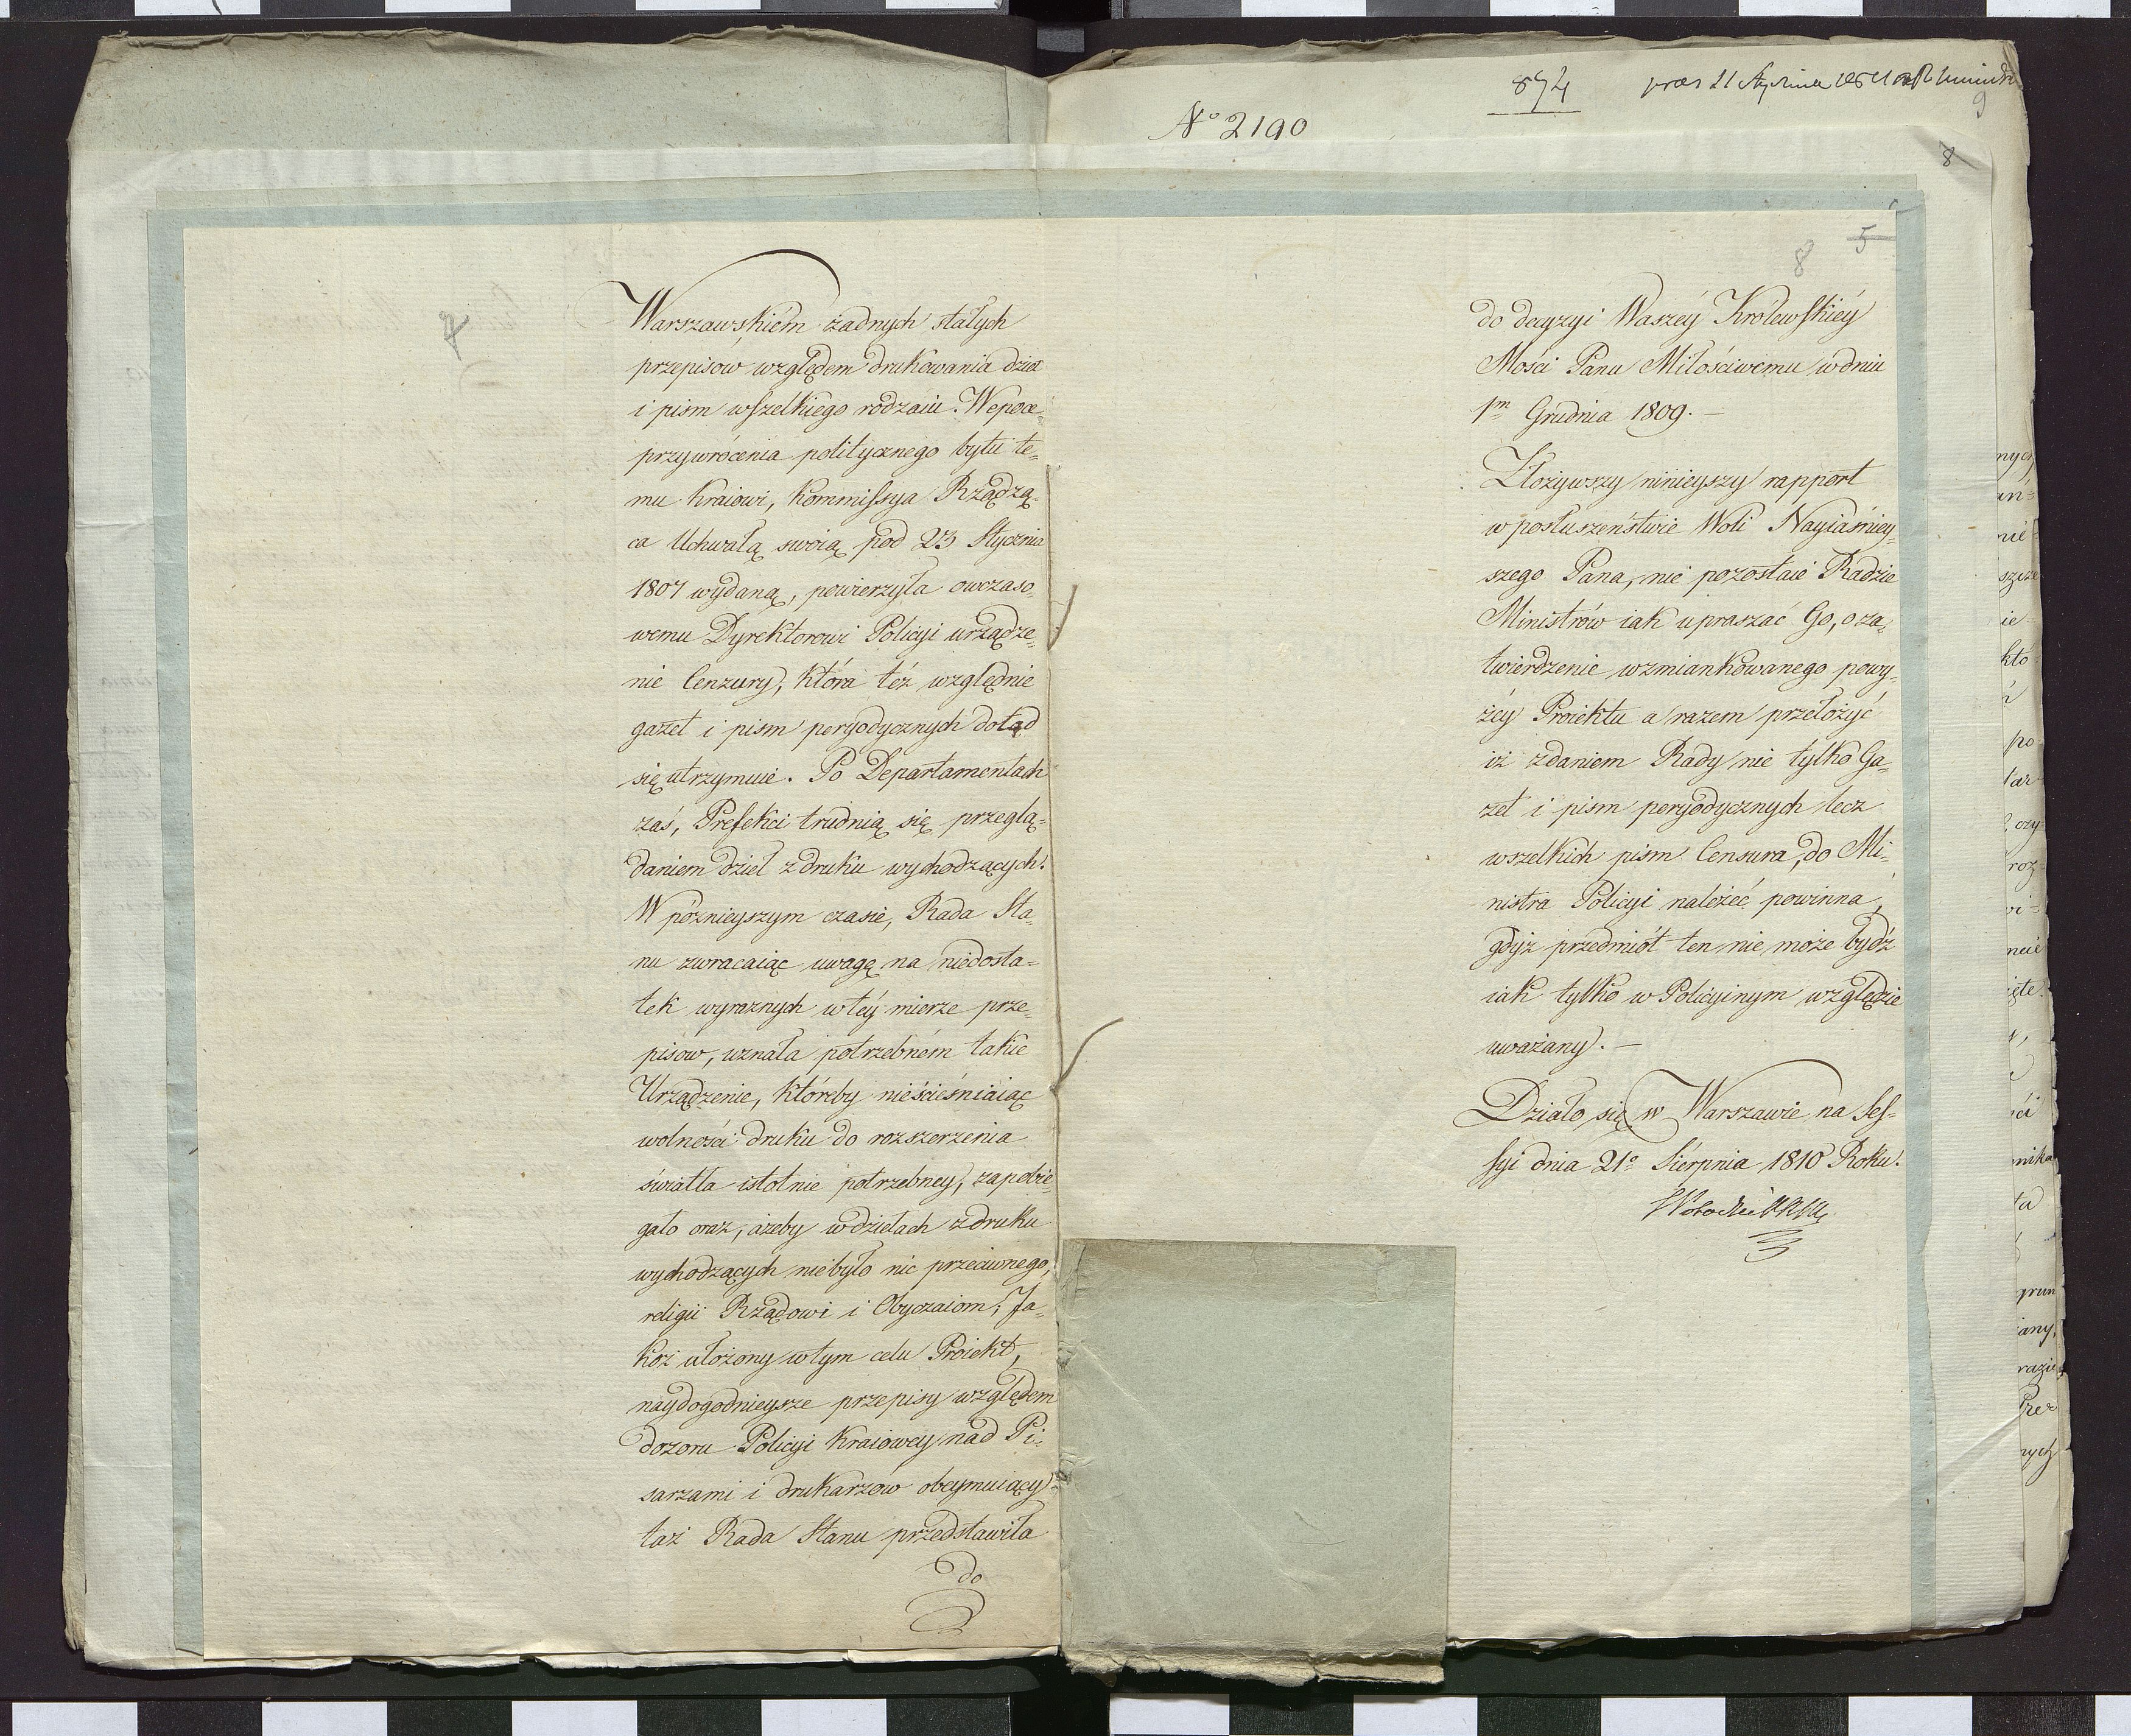 874
pras 21 Stycznia
No 2190
9
8
7
Warszawskiém żadnych stałych
przepisow względem drukowania dzieł
i pism wszelkiego rodzaiu. W epoce
przywrócenia politycznego bytu te=
mu Kraiowi, Kommissya Rządzą=
ca Uchwałą swoią pod 23 Stycznia
1807 wydaną, powierzyła owczaso
wemu Dyrektorowi Policyi urządze=
nie Cenzury, która też względnie
gazet i pism peryodycznych dotąd
się utrzymuie. Po Departamentach
zaś, Prefekci trudnią się przeglą=
daniem dzieł z druku wychodzących.
W poznieyszym czasie, Rada Sta=
nu zwracaiąc uwagę na niedosta=
tek wyraznych w téy mierze prze=
pisow, uznała potrzebném takie
Urządzenie, któreby nieścieśniaiąc
wolności druku do rozszerzenia
światła istotnie potrzebney, zapobie=
gało oraz, ażeby w dziełach z druku
wychodzących niebyło nic przeciwnego,
religii Rządowi i Obyczaiom; Ja=
koż ułożony w tym celu Proiekt,
naydogodnieysze przepisy względem
dozoru Policyi Kraiowey nad Pi=
sarzami i drukarzow obeymuiący
taż Rada Stanu przedstawiła
do
8 5
do decyzyi Waszéy Królewskiéy
Mości Panu Miłościwemu w dniu
1m Grudnia 1809. —
Złożywszy ninieyszy rapport
w posłuszeństwie Woli Nayiaśniey=
szego Pana, nie pozostaie Radzie
Ministrów iak upraszać Go, o za=
twierdzenie wzmiankowanego powy=
żéy Proiektu a razem przełożyć
iż zdaniem Rady nie tylko Ga=
zet i pism peryodycznych lecz
wszelkich pism Censura, do Mi=
nistra Policyi należeć powinna,
gdyż przedmiót ten nie może bydź
iak tylko w Policyinym względzie
uważany. —
Działo się w Warszawie na Ses=
syi dnia 21o Sierpnia 1810 Roku.